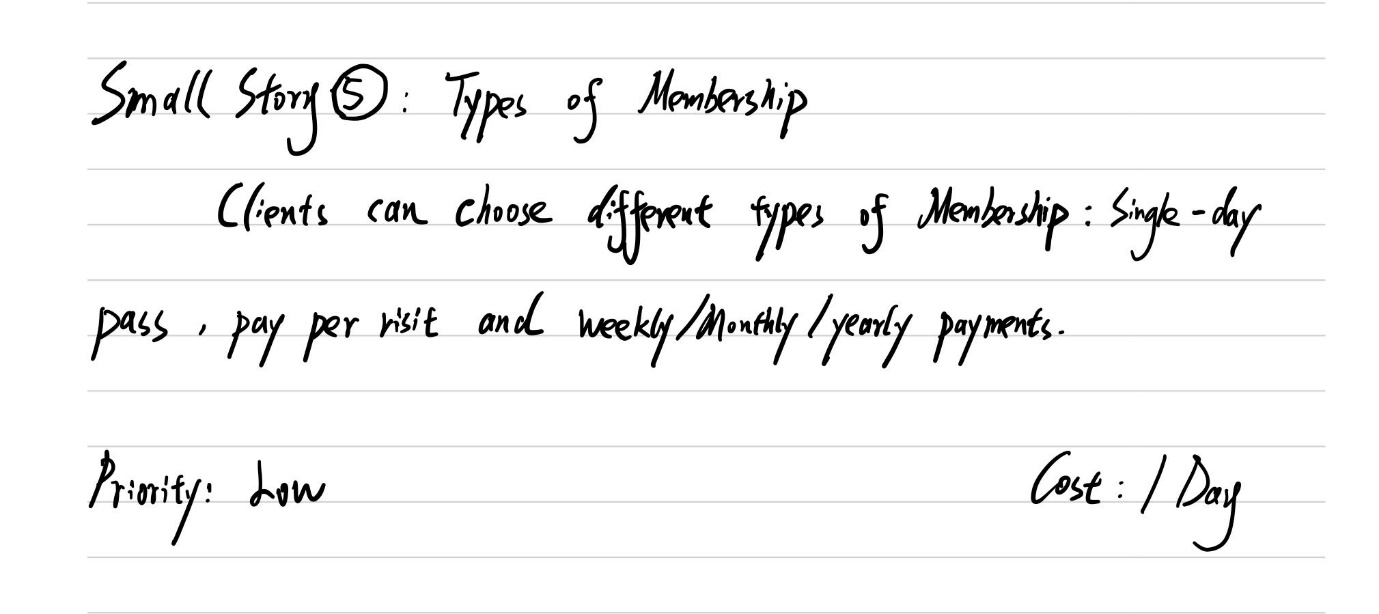 Small Story ⑤: Types of Membership
Clients can choose different types of Membership: Single-day
pass, pay per visit and weekly/Monthly/yearly payments.
Priority: Low Cost: 1 Day